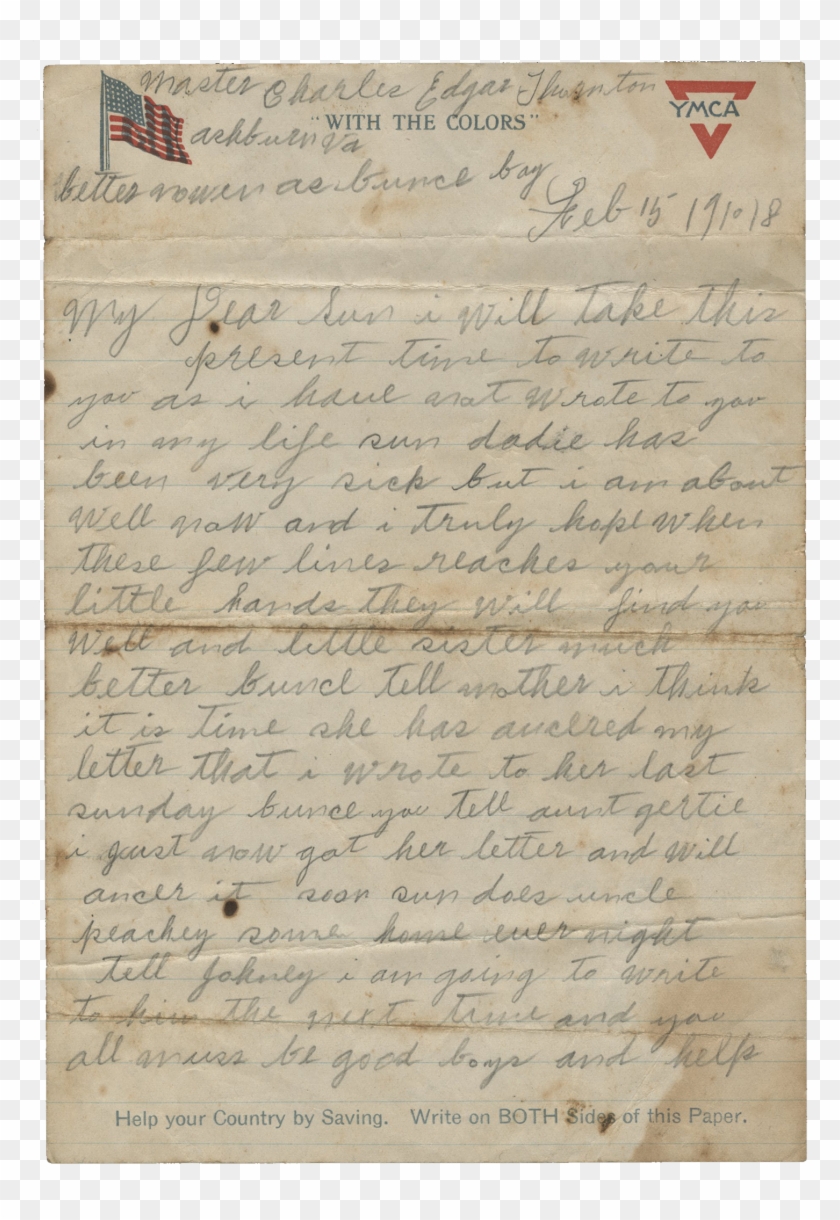 Master Charles Edgar Thornton
"WITH THE COLORS"
YMCA
ashburn Va
better as bunce boy
Feb 15 191018
My Dear Sun i will take this
present time to write to
you as i have not wrote to you
in my life sun dadie has
been very sick but i am about
well now and i truly hope when
these few lines reaches your
little hands they will find you
well and little sister much
better bunce tell mother i think
it is time she has ancered my
letter that i wrote to her last
sunday bunce you tell aunt gertie
i just now got her letter and will
ancer it soon sun does uncle
peachey some home ever night
tell Johney i am going to write
to him the next time and you
all muss be good boys and help
Help your Country by Saving. Write on BOTH Sides of this Paper.